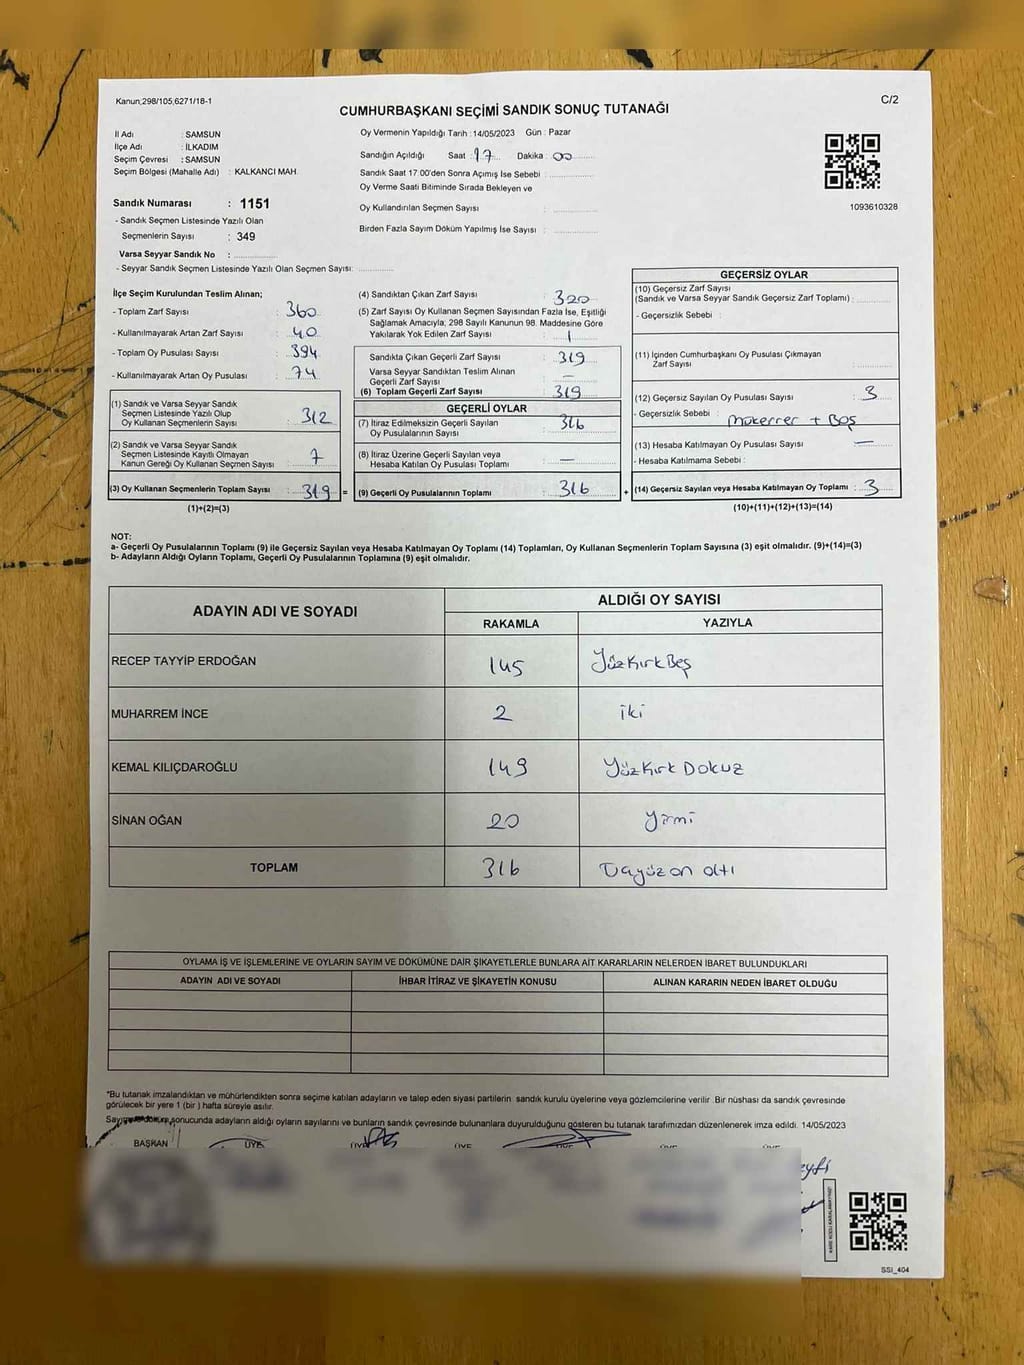 Kanun;298/105,6271/18-1
C/2
CUMHURBAŞKANI SEÇİMİ SANDIK SONUÇ TUTANAĞI
İl Adı : SAMSUN
İlçe Adı : İLKADIM
Seçim Çevresi : SAMSUN
Seçim Bölgesi (Mahalle Adı) : KALKANCI MAH.
Sandık Numarası : 1151
- Sandık Seçmen Listesinde Yazılı Olan
Seçmenlerin Sayısı : 349
Varsa Seyyar Sandık No :
- Seyyar Sandık Seçmen Listesinde Yazılı Olan Seçmen Sayısı:
Oy Vermenin Yapıldığı Tarih : 14/05/2023 Gün : Pazar
Sandığın Açıldığı Saat : 17 Dakika : 00
Sandık Saat 17.00'den Sonra Açımış İse Sebebi :
Oy Verme Saati Bitiminde Sırada Bekleyen ve
Oy Kullandırılan Seçmen Sayısı :
Birden Fazla Sayım Döküm Yapılmış İse Sayısı :
1093610328
İlçe Seçim Kurulundan Teslim Alınan;
- Toplam Zarf Sayısı : 360
- Kullanılmayarak Artan Zarf Sayısı : 40
- Toplam Oy Pusulası Sayısı : 394
- Kullanılmayarak Artan Oy Pusulası : 74
(1) Sandık ve Varsa Seyyar Sandık
Seçmen Listesinde Yazılı Olup
Oy Kullanan Seçmenlerin Sayısı : 312
(2) Sandık ve Varsa Seyyar Sandık
Seçmen Listesinde Kayıtlı Olmayan
Kanun Gereği Oy Kullanan Seçmen Sayısı : 7
(3) Oy Kullanan Seçmenlerin Toplam Sayısı : 319 =
(1)+(2)=(3)
(4) Sandıktan Çıkan Zarf Sayısı : 320
(5) Zarf Sayısı Oy Kullanan Seçmen Sayısından Fazla İse, Eşitliği
Sağlamak Amacıyla; 298 Sayılı Kanunun 98. Maddesine Göre
Yakılarak Yok Edilen Zarf Sayısı : 1
Sandıkta Çıkan Geçerli Zarf Sayısı : 319
Varsa Seyyar Sandıktan Teslim Alınan
Geçerli Zarf Sayısı : —
(6) Toplam Geçerli Zarf Sayısı : 319
GEÇERLİ OYLAR
(7) İtiraz Edilmeksizin Geçerli Sayılan
Oy Pusulalarının Sayısı : 316
(8) İtiraz Üzerine Geçerli Sayılan veya
Hesaba Katılan Oy Pusulası Toplamı : —
(9) Geçerli Oy Pusulalarının Toplamı : 316 +
GEÇERSİZ OYLAR
(10) Geçersiz Zarf Sayısı
(Sandık ve Varsa Seyyar Sandık Geçersiz Zarf Toplamı) :
- Geçersizlik Sebebi :
(11) İçinden Cumhurbaşkanı Oy Pusulası Çıkmayan
Zarf Sayısı :
(12) Geçersiz Sayılan Oy Pusulası Sayısı : 3
- Geçersizlik Sebebi : Mükerrer + Boş
(13) Hesaba Katılmayan Oy Pusulası Sayısı : —
- Hesaba Katılmama Sebebi :
(14) Geçersiz Sayılan veya Hesaba Katılmayan Oy Toplamı : 3
(10)+(11)+(12)+(13)=(14)
NOT:
a- Geçerli Oy Pusulalarının Toplamı (9) ile Geçersiz Sayılan veya Hesaba Katılmayan Oy Toplamı (14) Toplamları, Oy Kullanan Seçmenlerin Toplam Sayısına (3) eşit olmalıdır. (9)+(14)=(3)
b- Adayların Aldığı Oyların Toplamı, Geçerli Oy Pusulalarının Toplamına (9) eşit olmalıdır.
ADAYIN ADI VE SOYADI
ALDIĞI OY SAYISI
RAKAMLA YAZIYLA
RECEP TAYYİP ERDOĞAN 145 YüzKırkBeş
MUHARREM İNCE 2 iki
KEMAL KILIÇDAROĞLU 149 YüzKırk Dokuz
SİNAN OĞAN 20 yirmi
TOPLAM 316 Üçyüz on altı
OYLAMA İŞ VE İŞLEMLERİNE VE OYLARIN SAYIM VE DÖKÜMÜNE DAİR ŞİKAYETLERLE BUNLARA AİT KARARLARIN NELERDEN İBARET BULUNDUKLARI
ADAYIN ADI VE SOYADI İHBAR İTİRAZ VE ŞİKAYETİN KONUSU ALINAN KARARIN NEDEN İBARET OLDUĞU
*Bu tutanak imzalandıktan ve mühürlendikten sonra seçime katılan adayların ve talep eden siyasi partilerin sandık kurulu üyelerine veya gözlemcilerine verilir. Bir nüshası da sandık çevresinde
görülecek bir yere 1 (bir ) hafta süreyle asılır.
sonucunda adayların aldığı oyların sayılarını ve bunların sandık çevresinde bulunanlara duyurulduğunu gösteren bu tutanak tarafımızdan düzenlenerek imza edildi. 14/05/2023
BAŞKAN ÜYE ÜYE ÜYE ÜYE
SSI_404